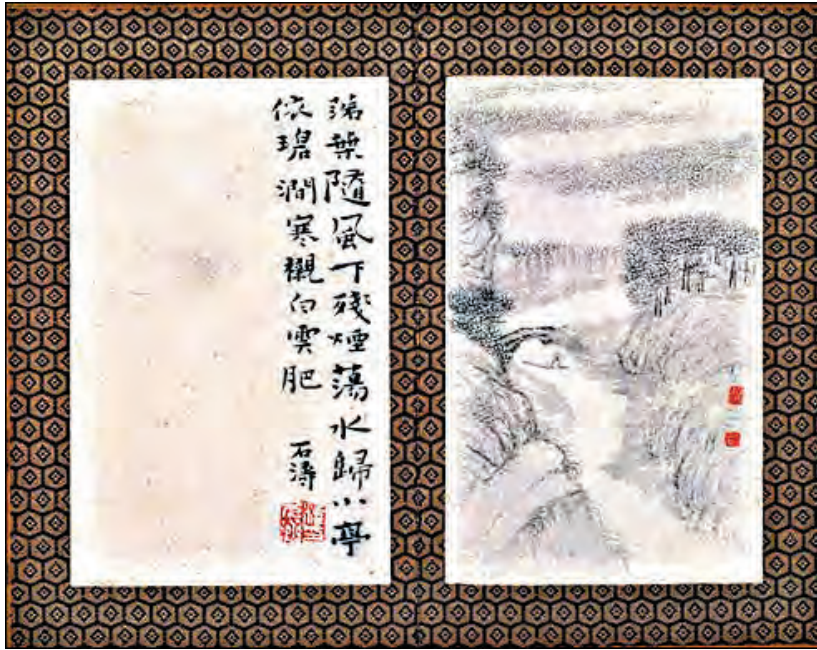 疎葉隨風下殘煙蕩水歸小亭
依碧澗寒襯白雲肥
石濤